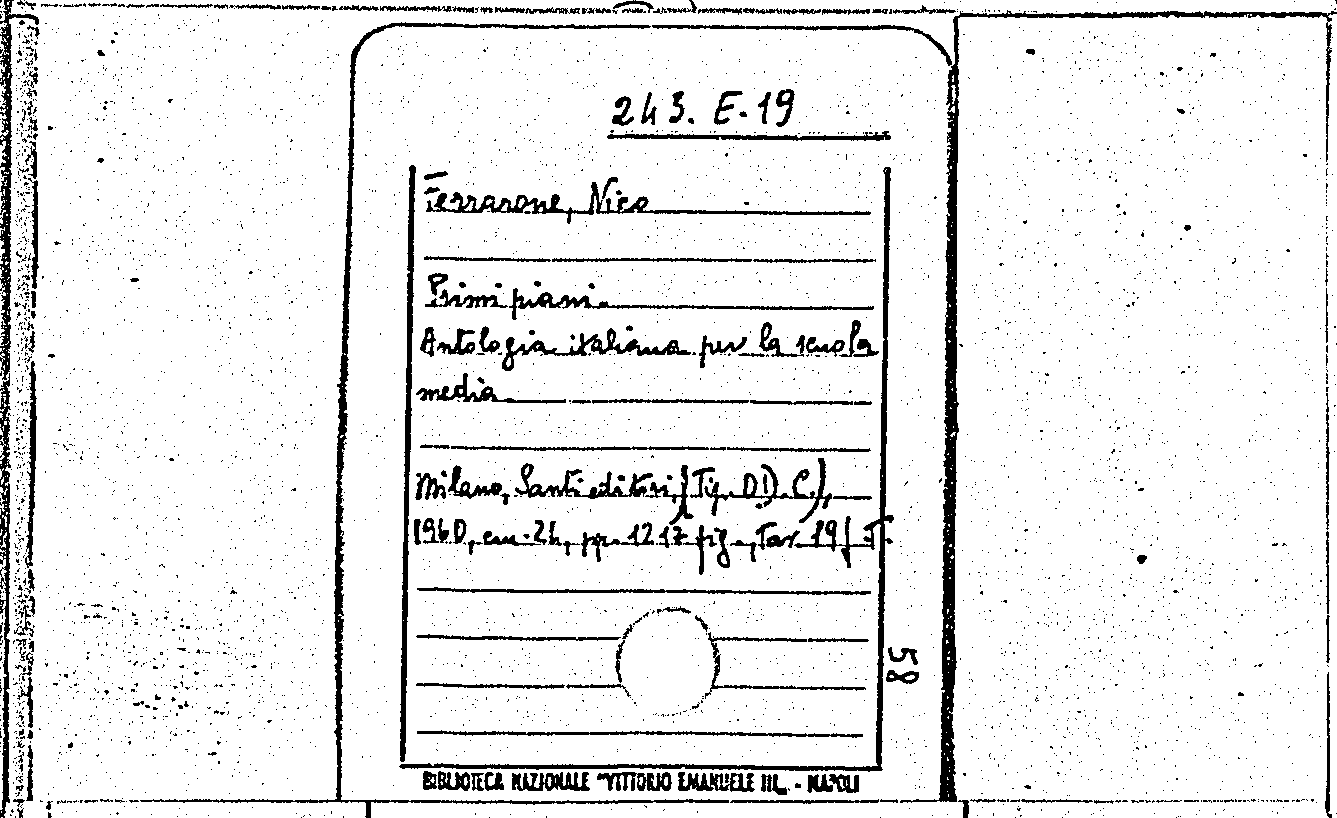 243. E-19
Ferrarone, Nico
Primi piani.
Antologia italiana per la scuola
media.
Milano, Santi editori, (Tip. D.D.C.),
1960, cm. 24, pp. 1217 fig., Tav. 19
58
BIBLIOTECA NAZIONALE "VITTORIO EMANUELE III„ - NAPOLI